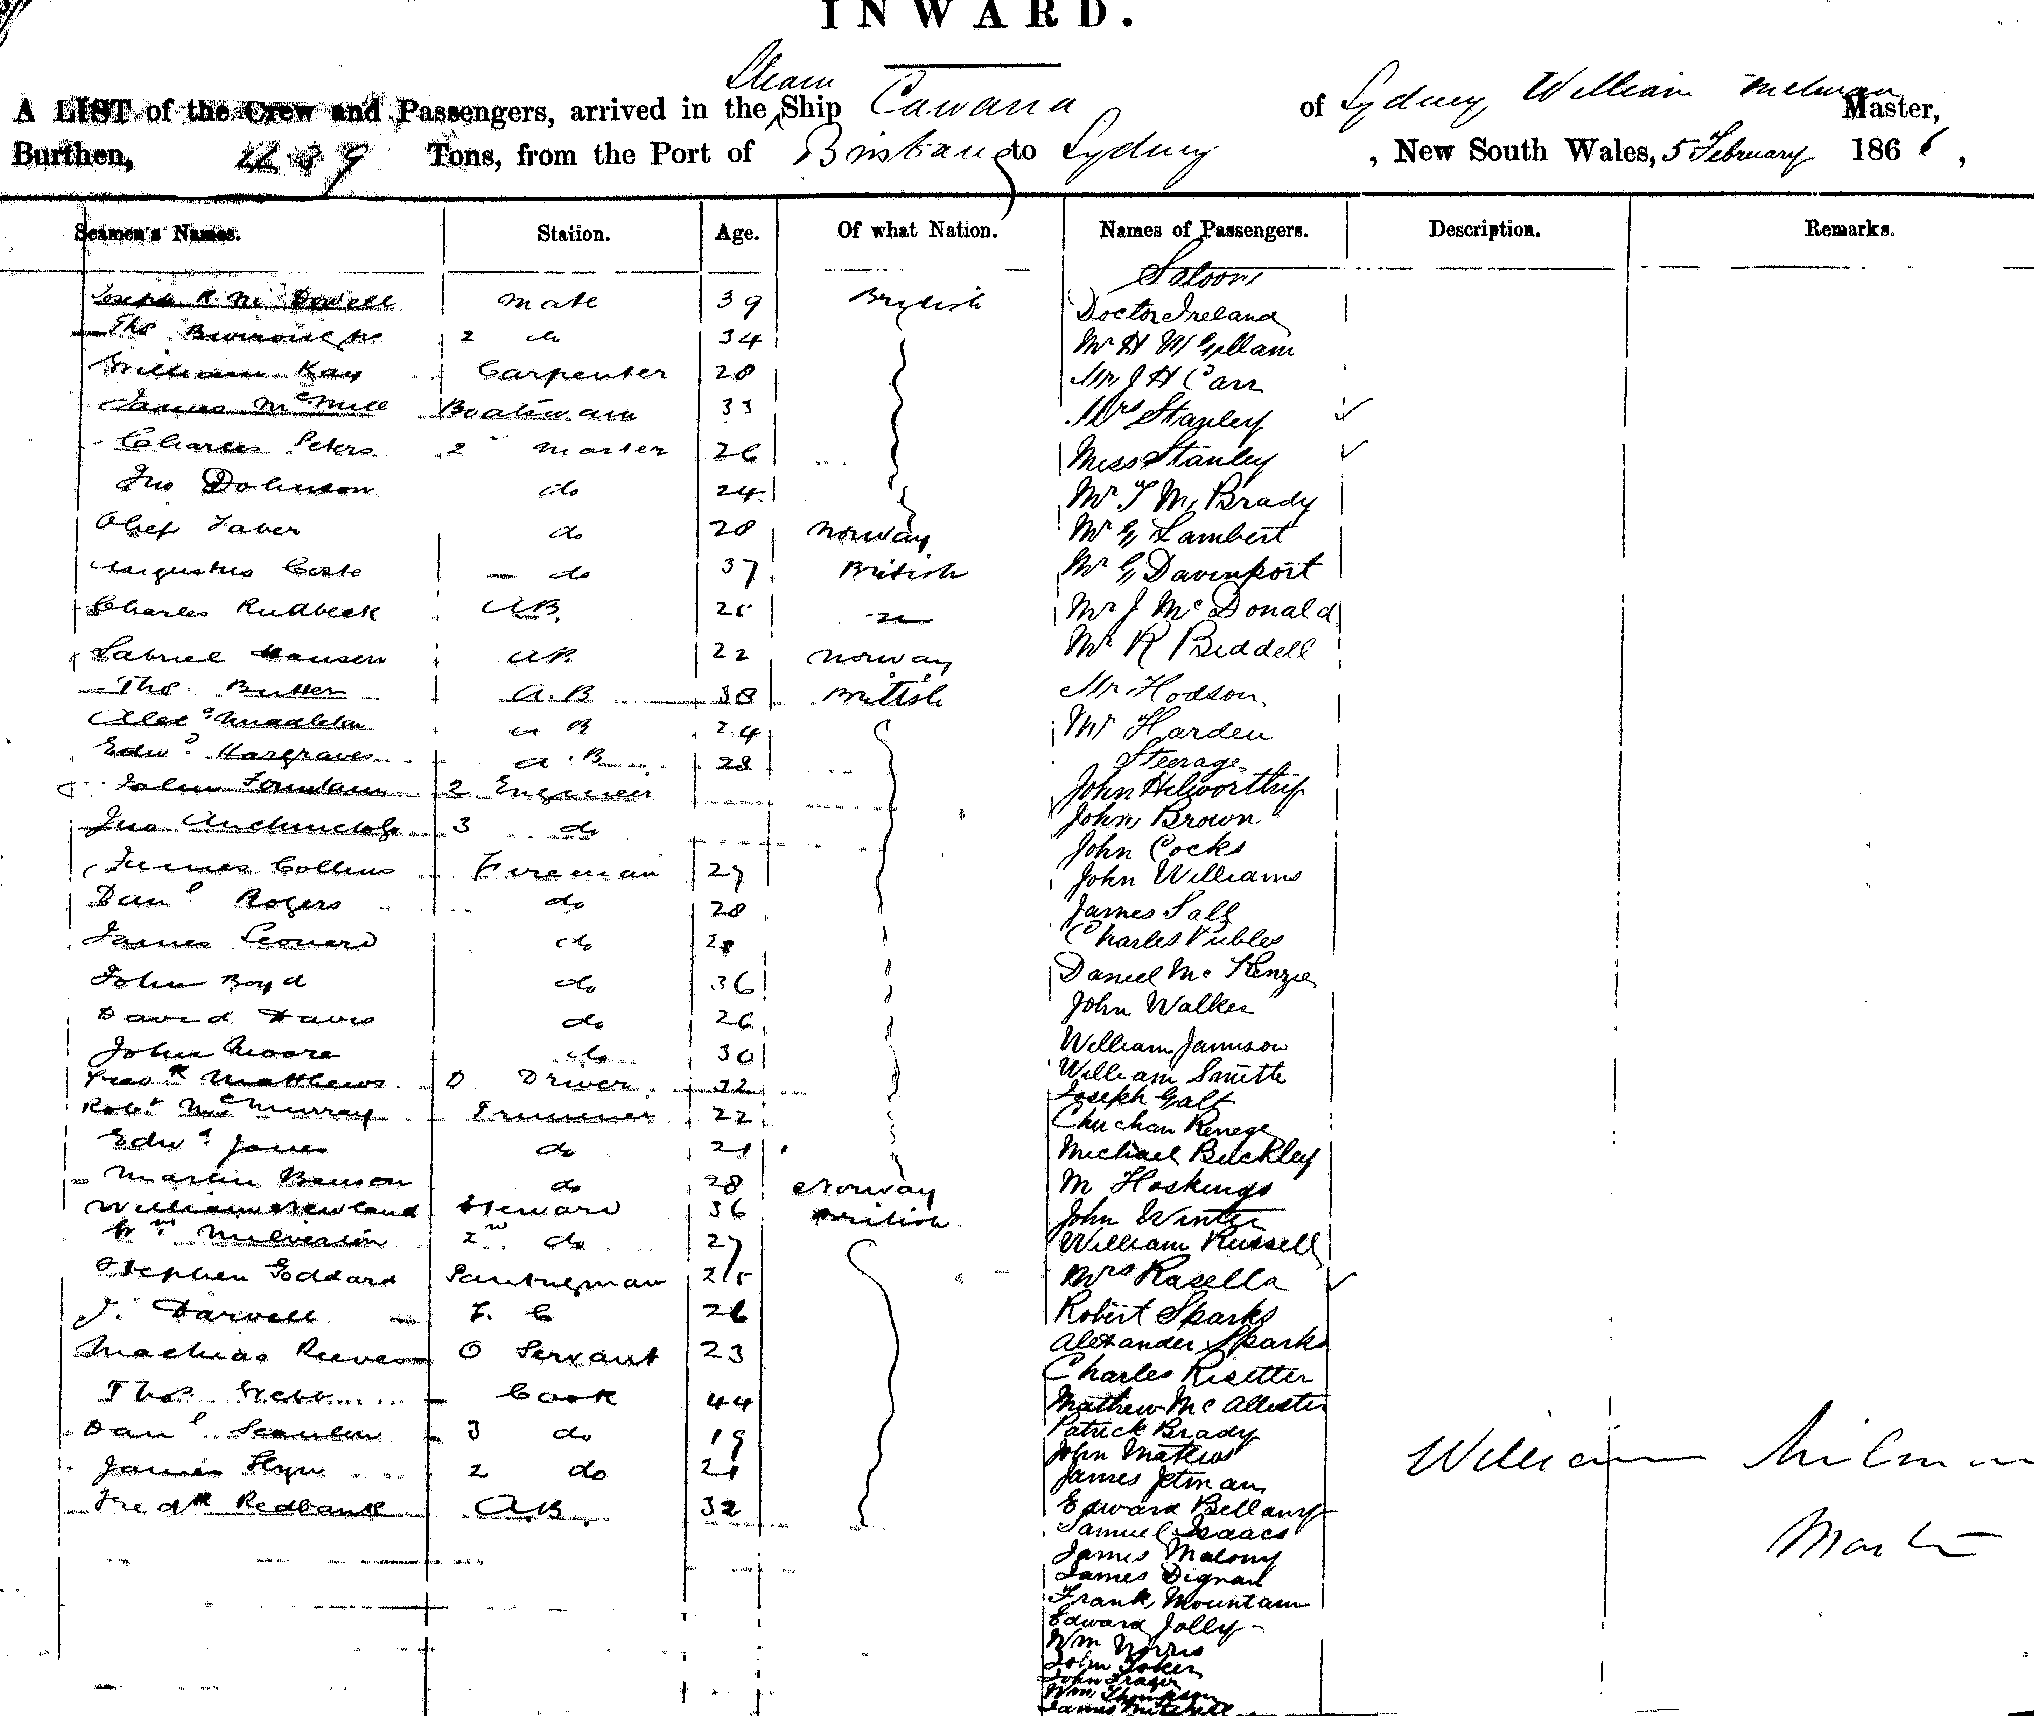 INWARD.
A LIST of the Crew and Passengers, arrived in the Steam Ship Cawana of Sydney William Milman Master,
Burthen, Tons, from the Port of Brisbane to Sydney, New South Wales, 5 February 1866,
Seamen's Names. Station. Age. Of what Nation. Names of Passengers. Description. Remarks.
Saloon
Joseph R Mc Dowell Mate 39 British Doctor Ireland
Thos 2 do 34 Mr H McGillam
William Kay Carpenter 28 Mr J H Carr
James McMill Boatswain 33 Mrs Stanley
Charles Peters 2 Master 26 Miss Stanley
Jno Dohnson do 24 Mr T Mc Brady
Olief Taber do 28 Norway Mr G Lambert
Augustus Coste do 37 British Mr G Davenport
Charles Rudbeck AB 25 Mr J McDonald
Gabriel Hansen AB 22 Norway Mr R Biddell
Thos Butler A.B 38 British Mr Hodson
Alexr Middleton A B 24 Mr Harden
Edwd Hargraves A.B 28 Steerage
John Fountain 2 Engineer John
Jno 3 do John Brown
John Cocks
James Collins Fireman 27 John Williams
Danl Rogers do 28 James
James Leonard do 28 Charles
John Boyd do 36 Daniel Mc Kenzie
David Davis do 26 John Walker
John Moore do 30 William Jamison
Fredk Matthews D Driver 32 William Smith
Robt McMurray Trimmer 22 Joseph Galt
Edwd Jones do 21 Michael Buckley
Martin Benson do 28 Norway M Hoskings
William Newland Steward 36 British John Winter
Wm Milverton 2nd do 27 William Russell
Stephen Goddard Pantryman 25 Mrs Rasella
J. Darvell F. C 26 Robert Sparks
Alexander Sparks
Mathias Reeves O Servant 23 Charles Risetter
Thos Webb Cook 44 Mathew McAllister
Danl Scanlen 3 do 19 Patrick Brady
John Mathews
James Flynn 2 do 21 James Jetman
Fredk Redbank A.B. 32 Edward Bellamy
Samuel Isaacs
James Malony
James Dignan
Frank Mountain
Edward Jolly
Wm Norris
John
John Frazer
Wm Thompson
James Mitchell
William Milman
Master